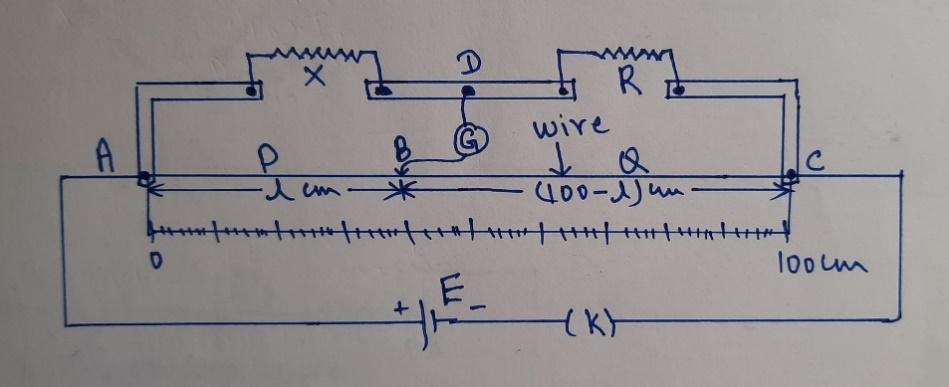 X
D
R
G
wire
A
P
B
Q
C
l cm
(100-l)cm
0
100cm
+
E
-
(K)